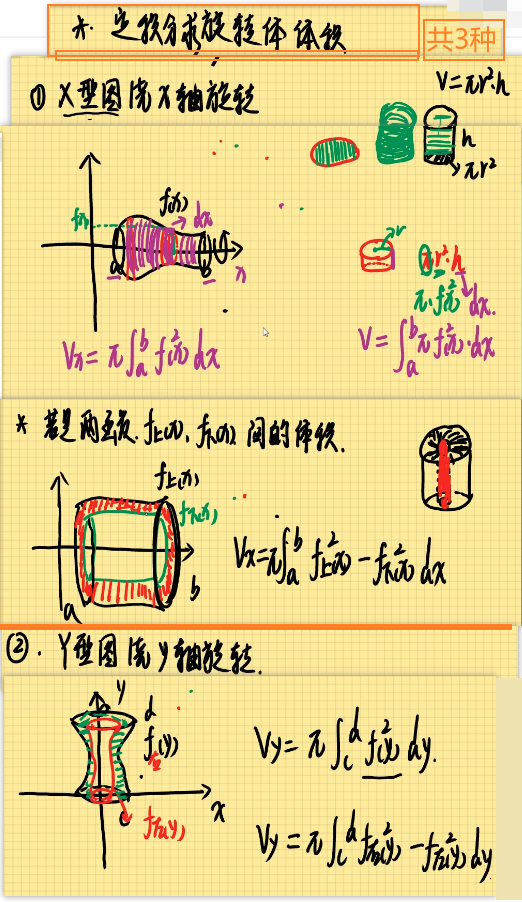 *. 定积分求旋转体体积
共3种
① X型图绕X轴旋转
V=πr²·h
h
πr²
f(x)
f(x)
dx
a
b
x
r
πr²·h
π·f²(x) dx.
Vx=π∫ₐᵇ f²(x) dx
V=∫ₐᵇ π f²(x)·dx
* 若是两函数.f上(x).f下(x) 间的体积.
f上(x)
f下(x)
a
b
Vx=π∫ₐᵇ f上²(x)-f下²(x) dx
②. Y型图绕y轴旋转.
y
d
f(y)
c
x
Vy=π∫_c^d f²(y) dy.
Vy=π∫_c^d f右²(y)-f左²(y) dy